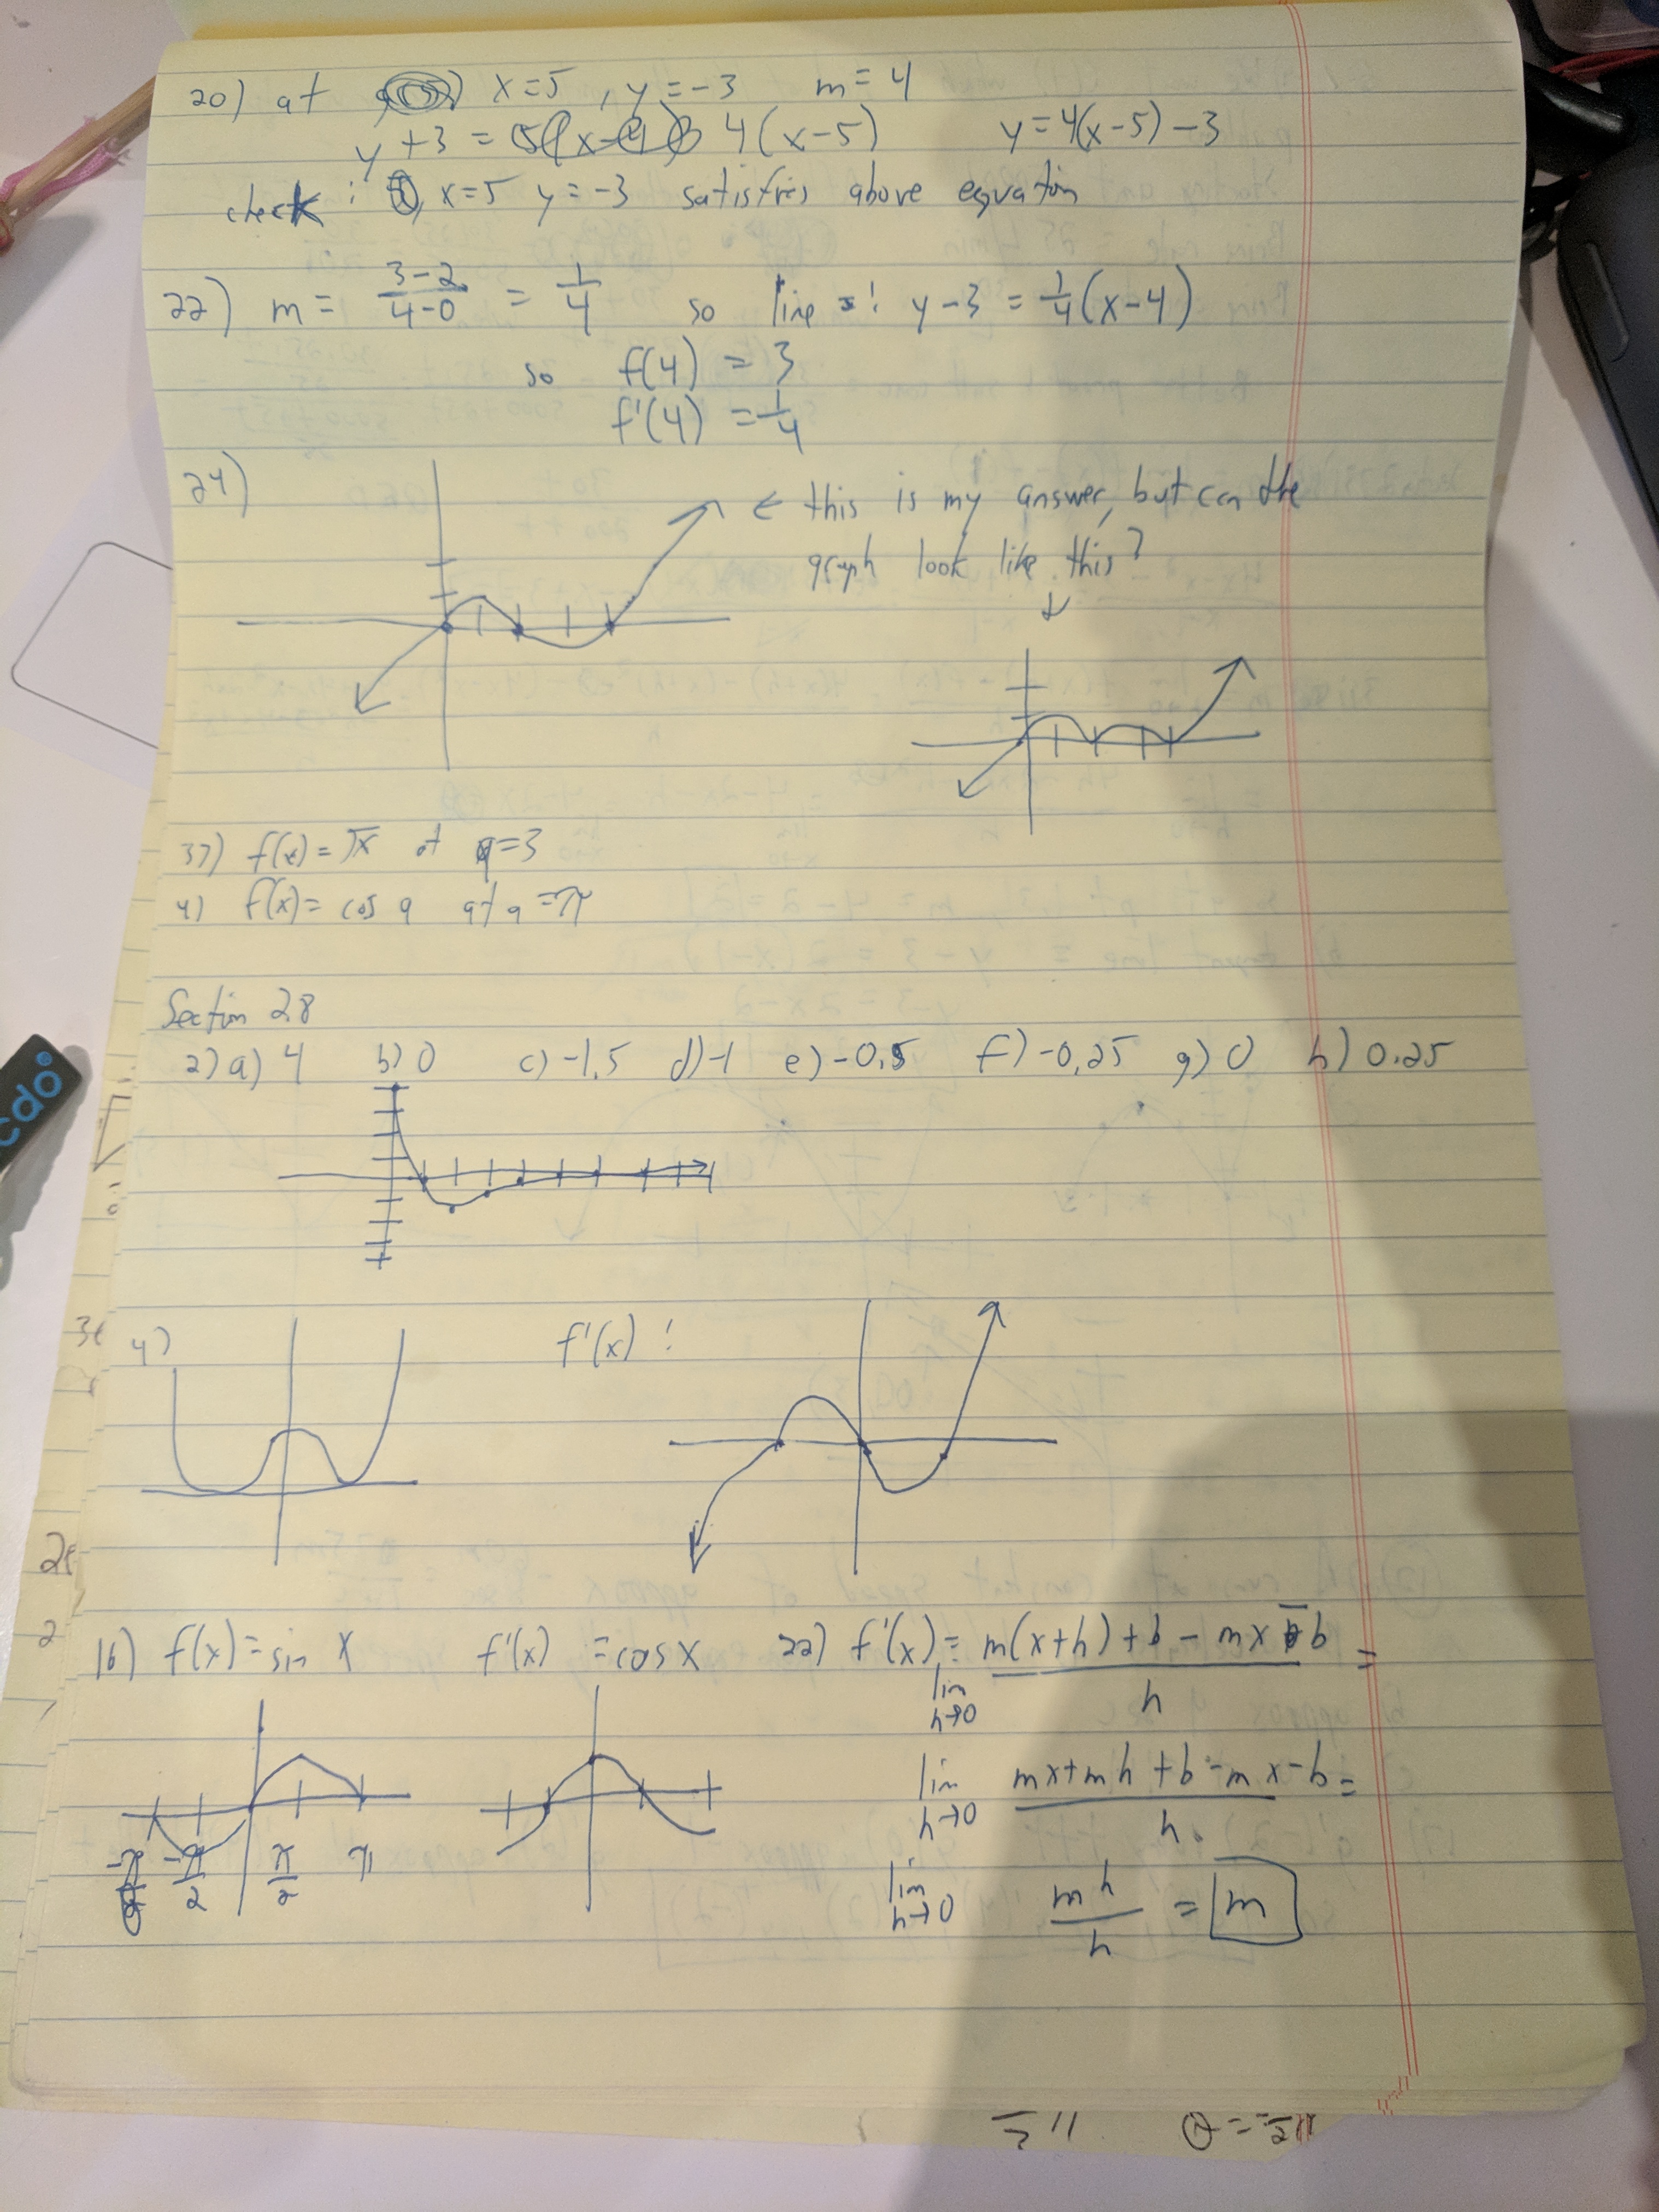 20) at x=5, y=-3 m=4
y+3 = 4(x-5) y=4(x-5)-3
check: x=5 y=-3 satisfies above equation
22) m = 3-2/4-0 = 1/4 so line: y-3 = 1/4(x-4)
so f(4) = 3
f'(4) = 1/4
24) ← this is my answer, but can the
graph look like this?
↓
37) f(x)=√x at a=3
41) f(x)= cos a at a=π
Section 2.8
2) a) 4 b) 0 c) -1.5 d) -1 e) -0.5 f) -0.25 g) 0 h) 0.25
4) f'(x):
16) f(x)=sin x f'(x) = cos x 22) f'(x) = lim h→0 m(x+h)+b-mx-b/h =
lim h→0 mx+mh+b-mx-b/h =
-π -π/2 π/2 π
lim h→0 mh/h = m
cdo